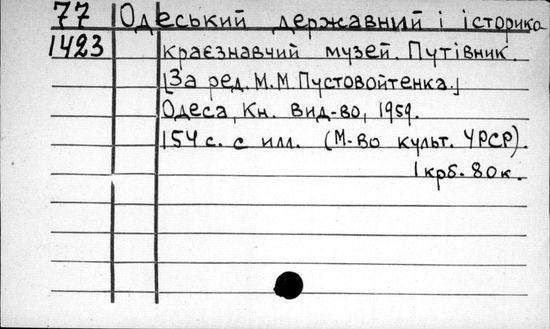 77 Одеський державний і історико-
1423 краєзнавчий музей. Путівник.
[За ред. М.М. Пустовойтенка.]
Одеса, Кн. вид-во, 1959.
154 с. с илл. (М-во культ. УРСР).
1 крб. 80 к.